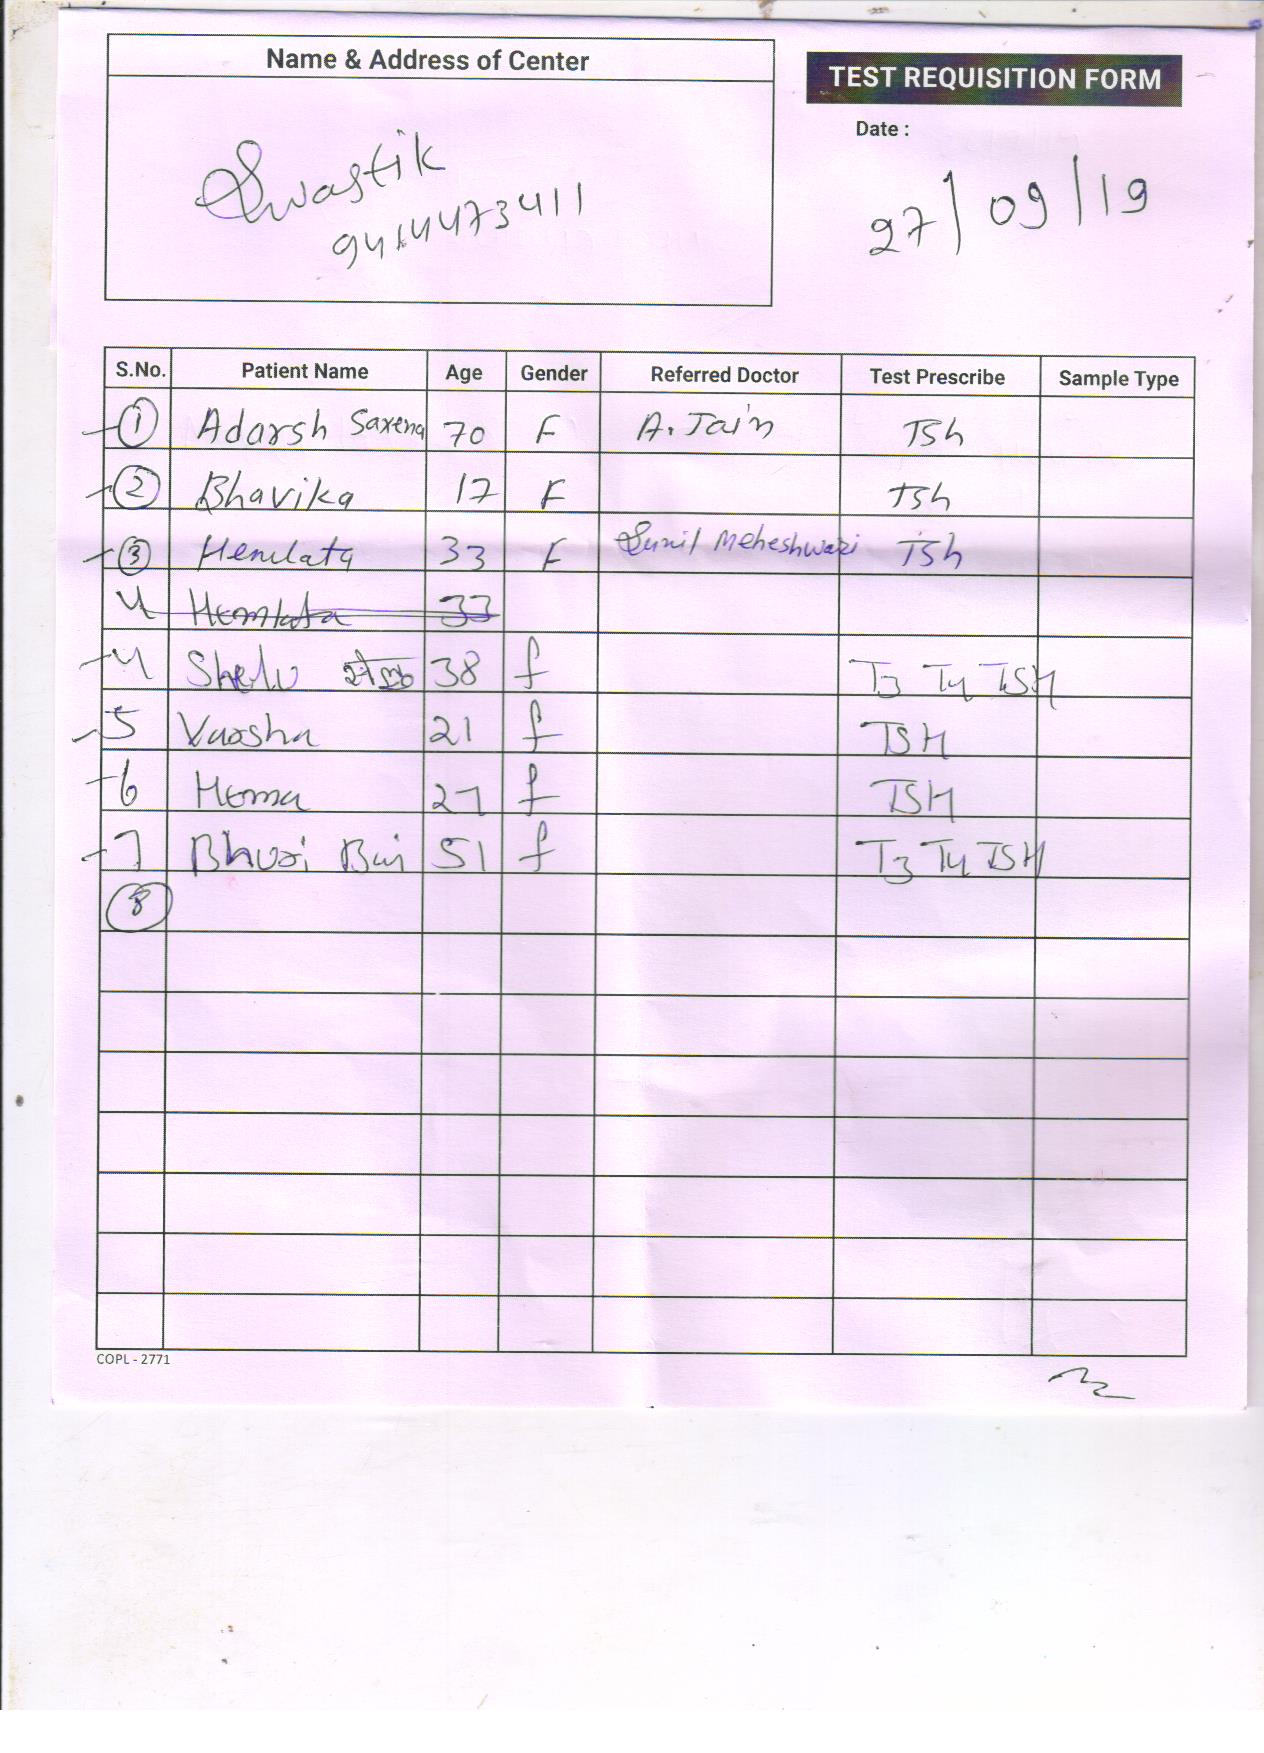 Name & Address of Center
TEST REQUISITION FORM
Date :
Swastik
9414473411
27/09/19
S.No. Patient Name Age Gender Referred Doctor Test Prescribe Sample Type
1 Adarsh Saxena 70 F A. Jain TSh
2 Bhavika 17 F TSh
3 Hemlata 33 F Sunil Meheshwari TSh
4 Hemlata 33
4 Shelu 38 f T3 T4 TSH
5 Varsha 21 f TSH
6 Hema 27 f TSH
7 Bhuri Bai 51 f T3 T4 TSH
8
COPL - 2771